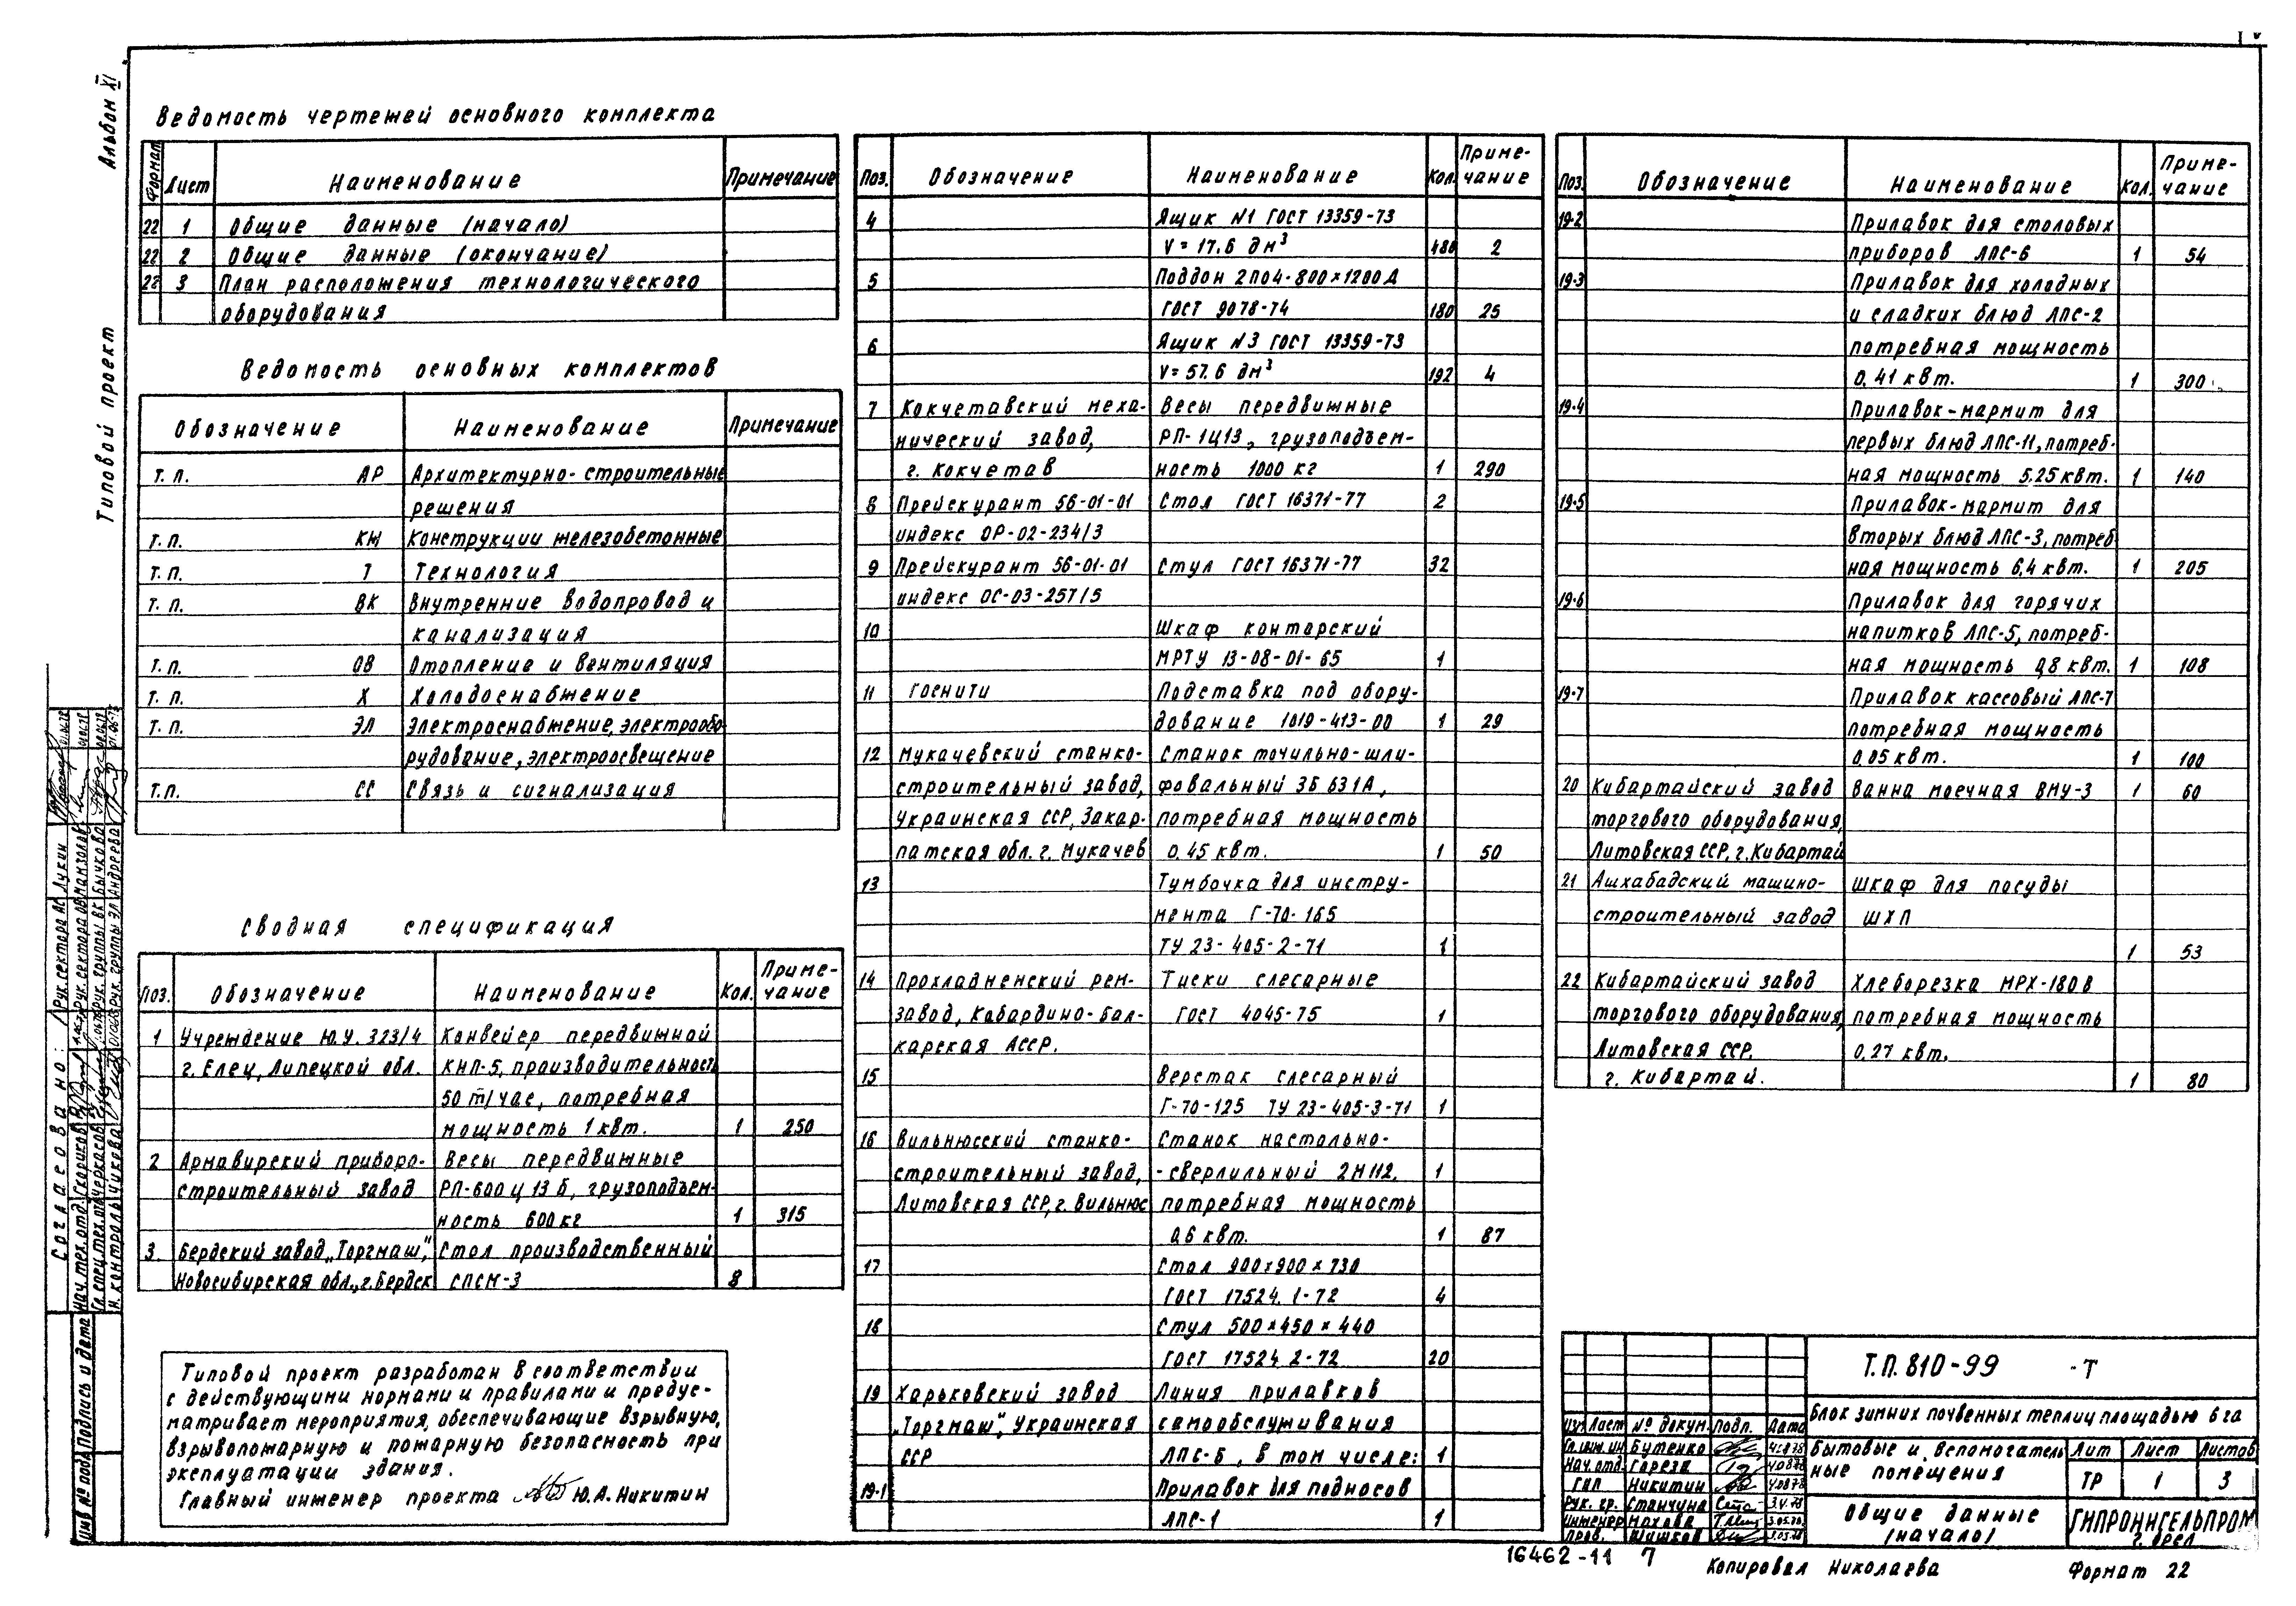 Альбом XI
Типовой проект
Ведомость чертежей основного комплекта
Формат Лист Наименование Примечание
22 1 Общие данные (начало)
22 2 Общие данные (окончание)
22 3 План расположения технологического
оборудования
Ведомость основных комплектов
Обозначение Наименование Примечание
Т.П. АР Архитектурно-строительные
решения
Т.П. КЖ Конструкции железобетонные
Т.П. Т Технология
Т.П. ВК Внутренние водопровод и
канализация
Т.П. ОВ Отопление и вентиляция
Т.П. Х Холодоснабжение
Т.П. ЭЛ Электроснабжение, электрообо-
рудование, электроосвещение
Т.П. СС Связь и сигнализация
Сводная спецификация
Поз. Обозначение Наименование Кол. Приме-
чание
1 Учреждение Ю.У. 323/4 Конвейер передвижной
г. Елец, Липецкой обл. КНП-5, производительность
50 т/час, потребная
мощность 1 квт. 1 250
2 Армавирский приборо- Весы передвижные
строительный завод РП-600 Ц 13 Б, грузоподъем-
ность 600 кг 1 315
3. Бердский завод „Торгмаш", Стол производственный
Новосибирская обл., г. Бердск СПСМ-3 8
Типовой проект разработан в соответствии
с действующими нормами и правилами и предус-
матривает мероприятия, обеспечивающие взрывную,
взрывопожарную и пожарную безопасность при
эксплуатации здания.
Главный инженер проекта Ю.А. Никитин
Поз. Обозначение Наименование Кол. Приме-
чание
4 Ящик N1 ГОСТ 13359-73
V = 17.6 дм³ 480 2
5 Поддон 2ПО4-800×1200А
ГОСТ 9078-74 180 25
6 Ящик N3 ГОСТ 13359-73
V = 57.6 дм³ 192 4
7 Кокчетавский меха- Весы передвижные
нический завод, РП-1Ц13, грузоподъем-
г. Кокчетав ность 1000 кг 1 290
8 Прейскурант 56-01-01 Стол ГОСТ 16371-77 2
индекс ОР-02-234/3
9 Прейскурант 56-01-01 Стул ГОСТ 16371-77 32
индекс ОС-03-257/5
10 Шкаф конторский
МРТУ 13-08-01-65 1
11 ГОСНИТИ Подставка под обору-
дование 1019-413-00 1 29
12 Мукачевский станко- Станок точильно-шли-
строительный завод, фовальный 3Б 631А,
Украинская ССР, Закар- потребная мощность
патская обл. г. Мукачев 0.45 квт. 1 50
13 Тумбочка для инстру-
мента Г-70-165
ТУ 23-405-2-71 1
14 Прохладненский рем- Тиски слесарные
завод, Кабардино-Бал- ГОСТ 4045-75 1
карская АССР.
15 Верстак слесарный
Г-70-125 ТУ 23-405-3-71 1
16 Вильнюсский станко- Станок настольно-
строительный завод, -сверлильный 2М112. 1
Литовская ССР, г. Вильнюс потребная мощность
0,6 квт. 1 87
17 Стол 900×900×730
ГОСТ 17524.1-72 4
18 Стул 500×450×440
ГОСТ 17524.2-72 20
19 Харьковский завод Линия прилавков
„Торгмаш", Украинская самообслуживания
ССР ЛПС-Б, в том числе: 1
19-1 Прилавок для подносов
ЛПС-1 1
Поз. Обозначение Наименование Кол. Приме-
чание
19-2 Прилавок для столовых
приборов ЛПС-6 1 54
19-3 Прилавок для холодных
и сладких блюд ЛПС-2
потребная мощность
0,41 квт. 1 300
19-4 Прилавок-мармит для
первых блюд ЛПС-11, потреб-
ная мощность 5.25 квт. 1 140
19-5 Прилавок-мармит для
вторых блюд ЛПС-3, потреб
ная мощность 6,4 квт. 1 205
19-6 Прилавок для горячих
напитков ЛПС-5, потреб-
ная мощность 0,8 квт. 1 108
19-7 Прилавок кассовый ЛПС-7
потребная мощность
0,05 квт. 1 100
20 Кибартайский завод Ванна моечная ВМУ-3 1 60
торгового оборудования,
Литовская ССР, г. Кибартай
21 Ашхабадский машино- Шкаф для посуды
строительный завод ШХП
1 53
22 Кибартайский завод Хлеборезка МРХ-180 В
торгового оборудования, потребная мощность
Литовская ССР. 0.27 квт.
г. Кибартай. 1 80
Т.П. 810-99 -Т
Блок зимних почвенных теплиц площадью 6 га
Изм Лист № докум. Подп. Дата
Гл. инж. ин Бутенко
Нач. отд. Гореза
ГИП Никитин
Рук. гр. Станчина
Инженер Махова
Пров. Шишков
Бытовые и вспомогатель
ные помещения
Лит Лист Листов
ТР 1 3
Общие данные
(начало)
ГИПРОНИСЕЛЬПРОМ
г. Орел
16462-11 7
Копировал Николаева Формат 22
Согласовано:
Рук. сектора АС Лукин
Рук. группы ВК Бычкова
Рук. группы ЭЛ Андреева
Нач. тех. отд. Скориков
Гл. спец. тех. отд. Черкасов
Н. контроль Чикова
Инв № подл. Подпись и дата